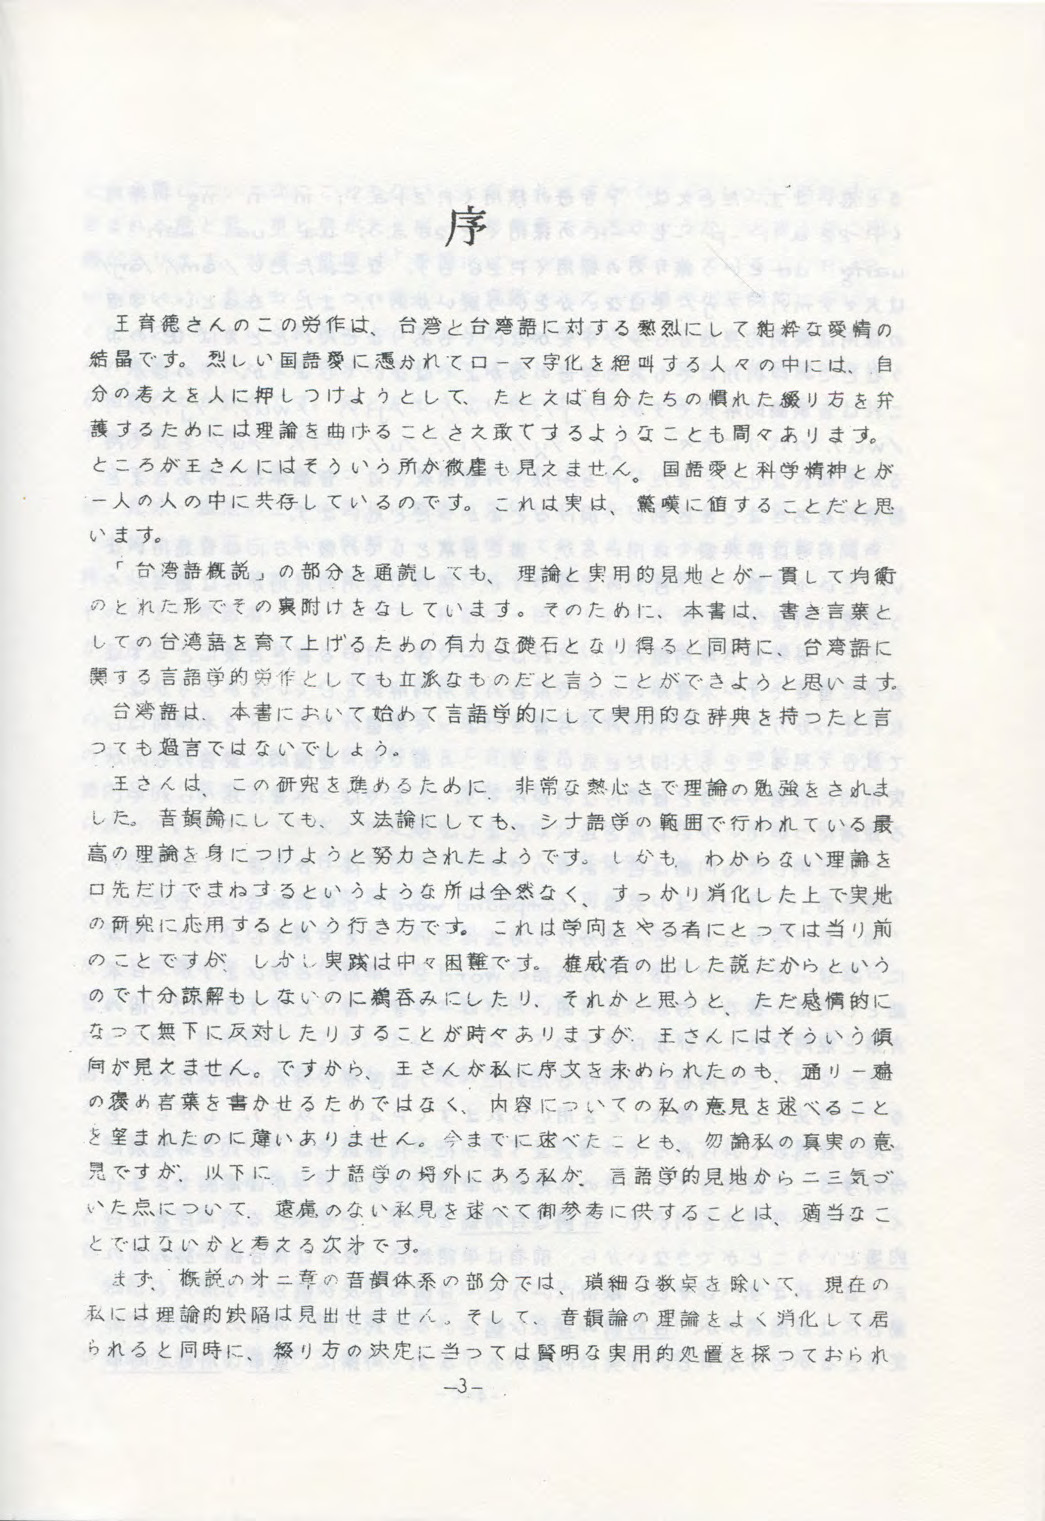 序
王育徳さんのこの労作は、台湾と台湾語に対する熱烈にして純粋な愛情の
結晶です。烈しい国語愛に憑かれてローマ字化を絶叫する人々の中には、自
分の考えを人に押しつけようとして、たとえば自分たちの慣れた綴り方を弁
護するためには理論を曲げることさえ敢てするようなことも間々あります。
ところが王さんにはそういう所が微塵も見えません。国語愛と科学精神とが
一人の人の中に共存しているのです。これは実は、驚嘆に値することだと思
います。
「台湾語概説」の部分を通読しても、理論と実用的見地とが一貫して均衡
のとれた形でその裏附けをなしています。そのために、本書は、書き言葉と
しての台湾語を育て上げるための有力な礎石となり得ると同時に、台湾語に
関する言語学的労作としても立派なものだと言うことができようと思います。
台湾語は、本書において始めて言語学的にして実用的な辞典を持つたと言
つても過言ではないでしょう。
王さんは、この研究を進めるために、非常な熱心さで理論の勉強をされま
した。音韻論にしても、文法論にしても、シナ語学の範囲で行われている最
高の理論を身につけようと努力されたようです。しかも、わからない理論を
口先だけでまねするというような所は全然なく、すっかり消化した上で実地
の研究に応用するという行き方です。これは学问をやる者にとっては当り前
のことですが、しかし実践は中々困難です。権威者の出した説だからという
ので十分諒解もしないのに鵜呑みにしたり、それかと思うと、ただ感情的に
なって無下に反対したりすることが時々ありますが、王さんにはそういう傾
向が見えません。ですから、王さんが私に序文を求められたのも、通り一遍
の褒め言葉を書かせるためではなく、内容についての私の意見を述べること
を望まれたのに違いありません。今までに述べたことも、勿論私の真実の意
見ですが、以下に、シナ語学の埓外にある私が、言語学的見地から二三気づ
いた点について、遠慮のない私見を述べて御参考に供することは、適当なこ
とではないかと考える次才です。
まず、概説の才二章の音韻体系の部分では、瑣細な数点を除いて、現在の
私には理論的缺陥は見出せません。そして、音韻論の理論をよく消化して居
られると同時に、綴り方の決定に当つては賢明な実用的処置を採つておられ
—3—